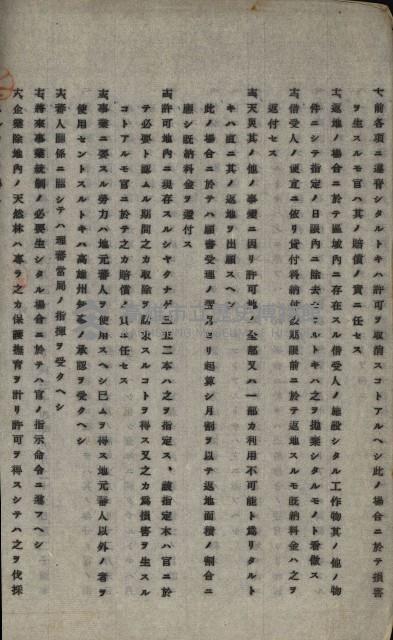 十、前各項ニ違背シタルトキハ許可ヲ取消スコトアルヘシ此ノ場合ニ於テ損害
ヲ生スルモ官ハ其ノ賠償ノ責ニ任セス
十一、返地ノ場合ニ於テ區域内ニ存在スル借受人ノ施設シタル工作物其ノ他ノ物
件ニシテ指定ノ日限内ニ除去セサルトキハ之ヲ拋棄シタルモノト看做ス
十二、借受人ノ便宜ニ依リ貸付料納付済期限前ニ於テ返地スルモ既納料金ハ之ヲ
返付セス
十三、天災其ノ他ノ事變ニ因リ許可地ノ全部又ハ一部カ利用不可能ト爲リタルト
キハ直ニ其ノ返地ヲ出願スヘシ
此ノ場合ニ於テハ願書受理ノ翌月ヨリ起算シ月割ヲ以テ返地面積ノ割合ニ
應シ既納料金ヲ還付ス
十四、許可地内ニ現存スルシヤクナゲ三五二本ハ之ヲ指定ス、該指定木ハ官ニ於
テ必要ト認ムル期間之カ取除ヲ請求スルコトヲ得ス又之カ爲損害ヲ生スル
コトアルモ官ニ於テ之カ賠償ノ責ニ任セス
十五、事業ニ要スル勞力ハ地元蕃人ヲ使用スヘシ已ムヲ得ス地元蕃人以外ノ者ヲ
使用セントスルトキハ高雄州知事ノ承認ヲ受クヘシ
十六、蕃人關係ニ關シテハ理蕃當局ノ指揮ヲ受クヘシ
十七、將來事業統制ノ必要生シタル場合ニ於テハ官ノ指示命令ニ遵フヘシ
十八、企業除地内ノ天然林ハ專ラ之カ保護撫育ヲ計リ許可ヲ得スシテハ之ヲ伐採